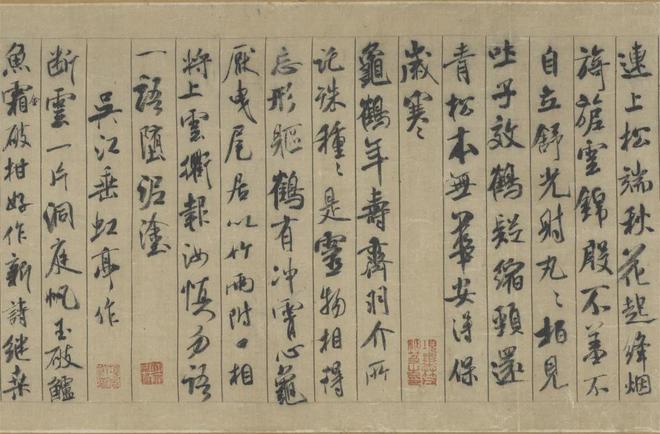 連上松端秋花起絳烟
旖旎雲錦殷不羞不
自立舒光射丸〻柏見
吐子效鶴疑縮頸還
青松本無華安得保
歲寒〻
龜鶴年壽齊羽介所
託殊種〻是靈物相得
忘形軀鶴有冲霄心龜
厭曳尾居以竹兩附口相
將上雲衢報汝慎勿語
一語墮泥塗
吳江垂虹亭作
断雲一片洞庭帆玉破鱸
魚霜金破柑好作新詩継桑